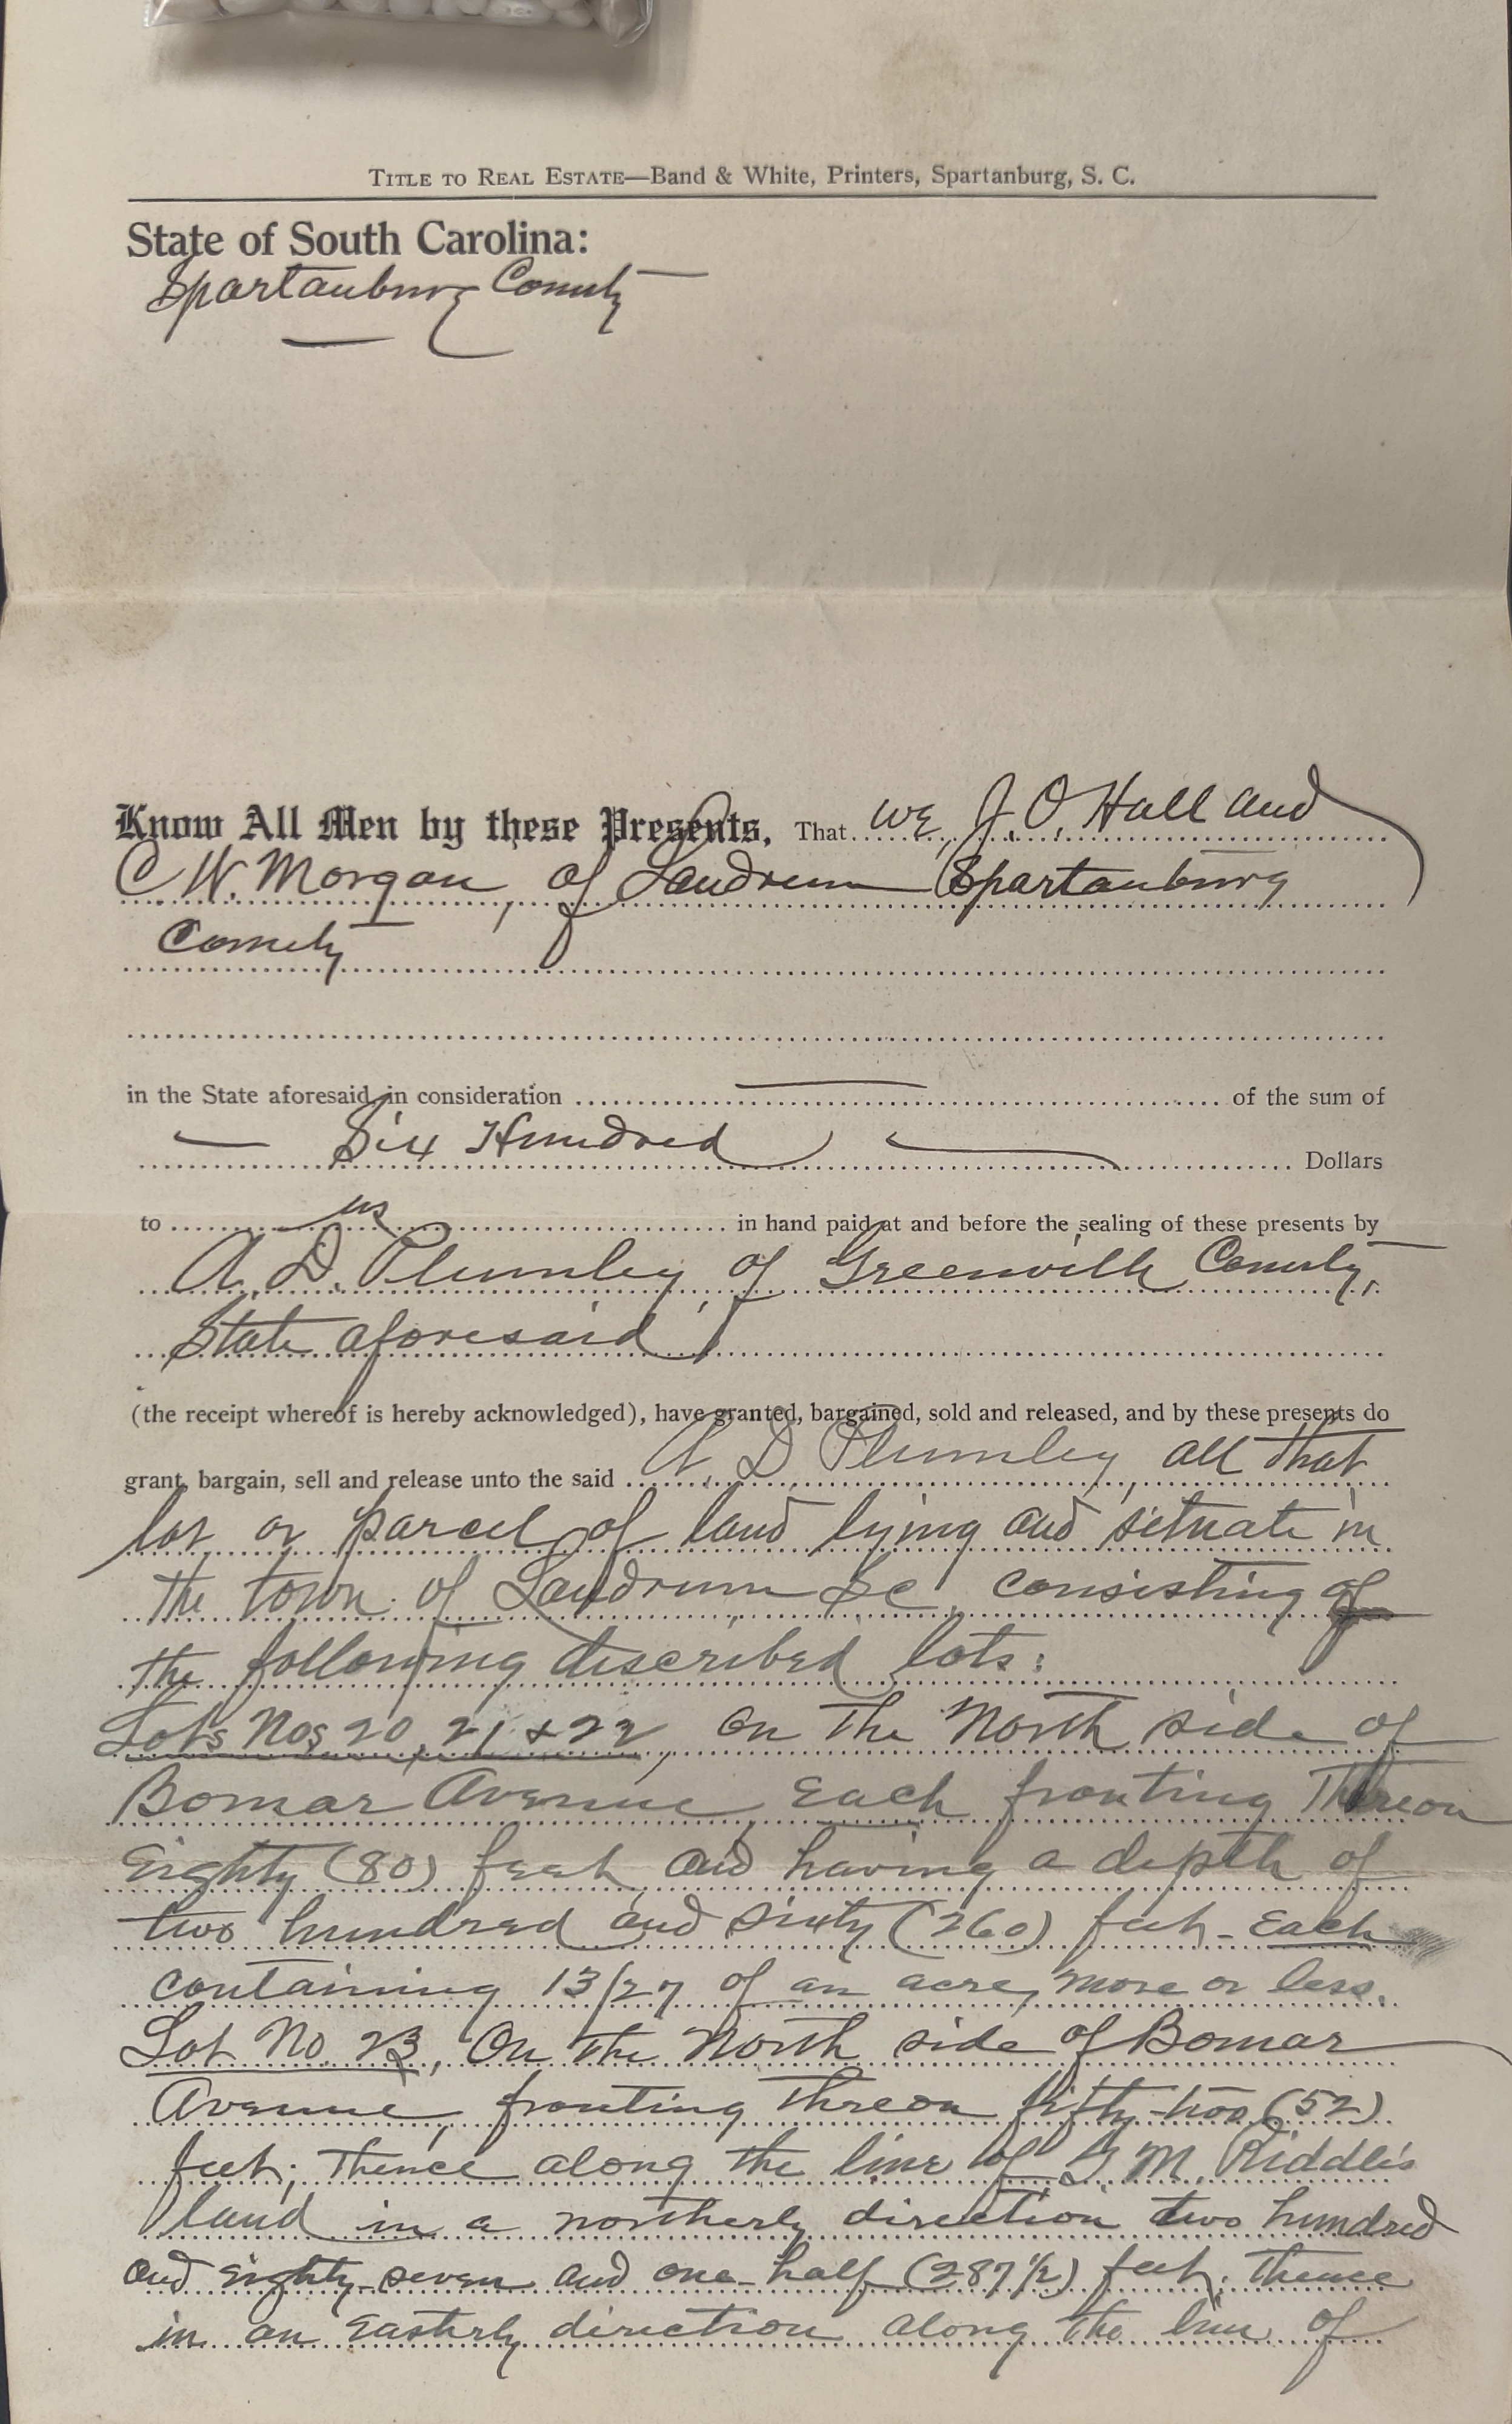 TITLE TO REAL ESTATE—Band & White, Printers, Spartanburg, S. C.
State of South Carolina:
Spartanburg County
Know All Men by these Presents, That we, J. O. Hall and
C. W. Morgan, of Landrum Spartanburg
County
in the State aforesaid, in consideration of the sum of
Six Hundred Dollars
to us in hand paid at and before the sealing of these presents by
A. D. Plumley, of Greenville County,
State aforesaid,
(the receipt whereof is hereby acknowledged), have granted, bargained, sold and released, and by these presents do
grant, bargain, sell and release unto the said A. D. Plumley, all that
lot or parcel of land lying and situate in
the town of Landrum S.C. consisting of
the following discribed lots:
Lots Nos 20, 21 & 22, on the North side of
Bomar Avenue, Each fronting Thereon
Eighty (80) feet, and having a depth of
two hundred and sixty (260) feet - Each
containing 13/27 of an acre, more or less.
Lot No. 23, On the North side of Bomar
Avenue, fronting thereon fifty-two (52)
feet; Thence along the line of G. M. Riddle's
land in a northerly direction two hundred
and eighty-seven and one-half (287 1/2) feet; thence
in an Easterly direction along the line of